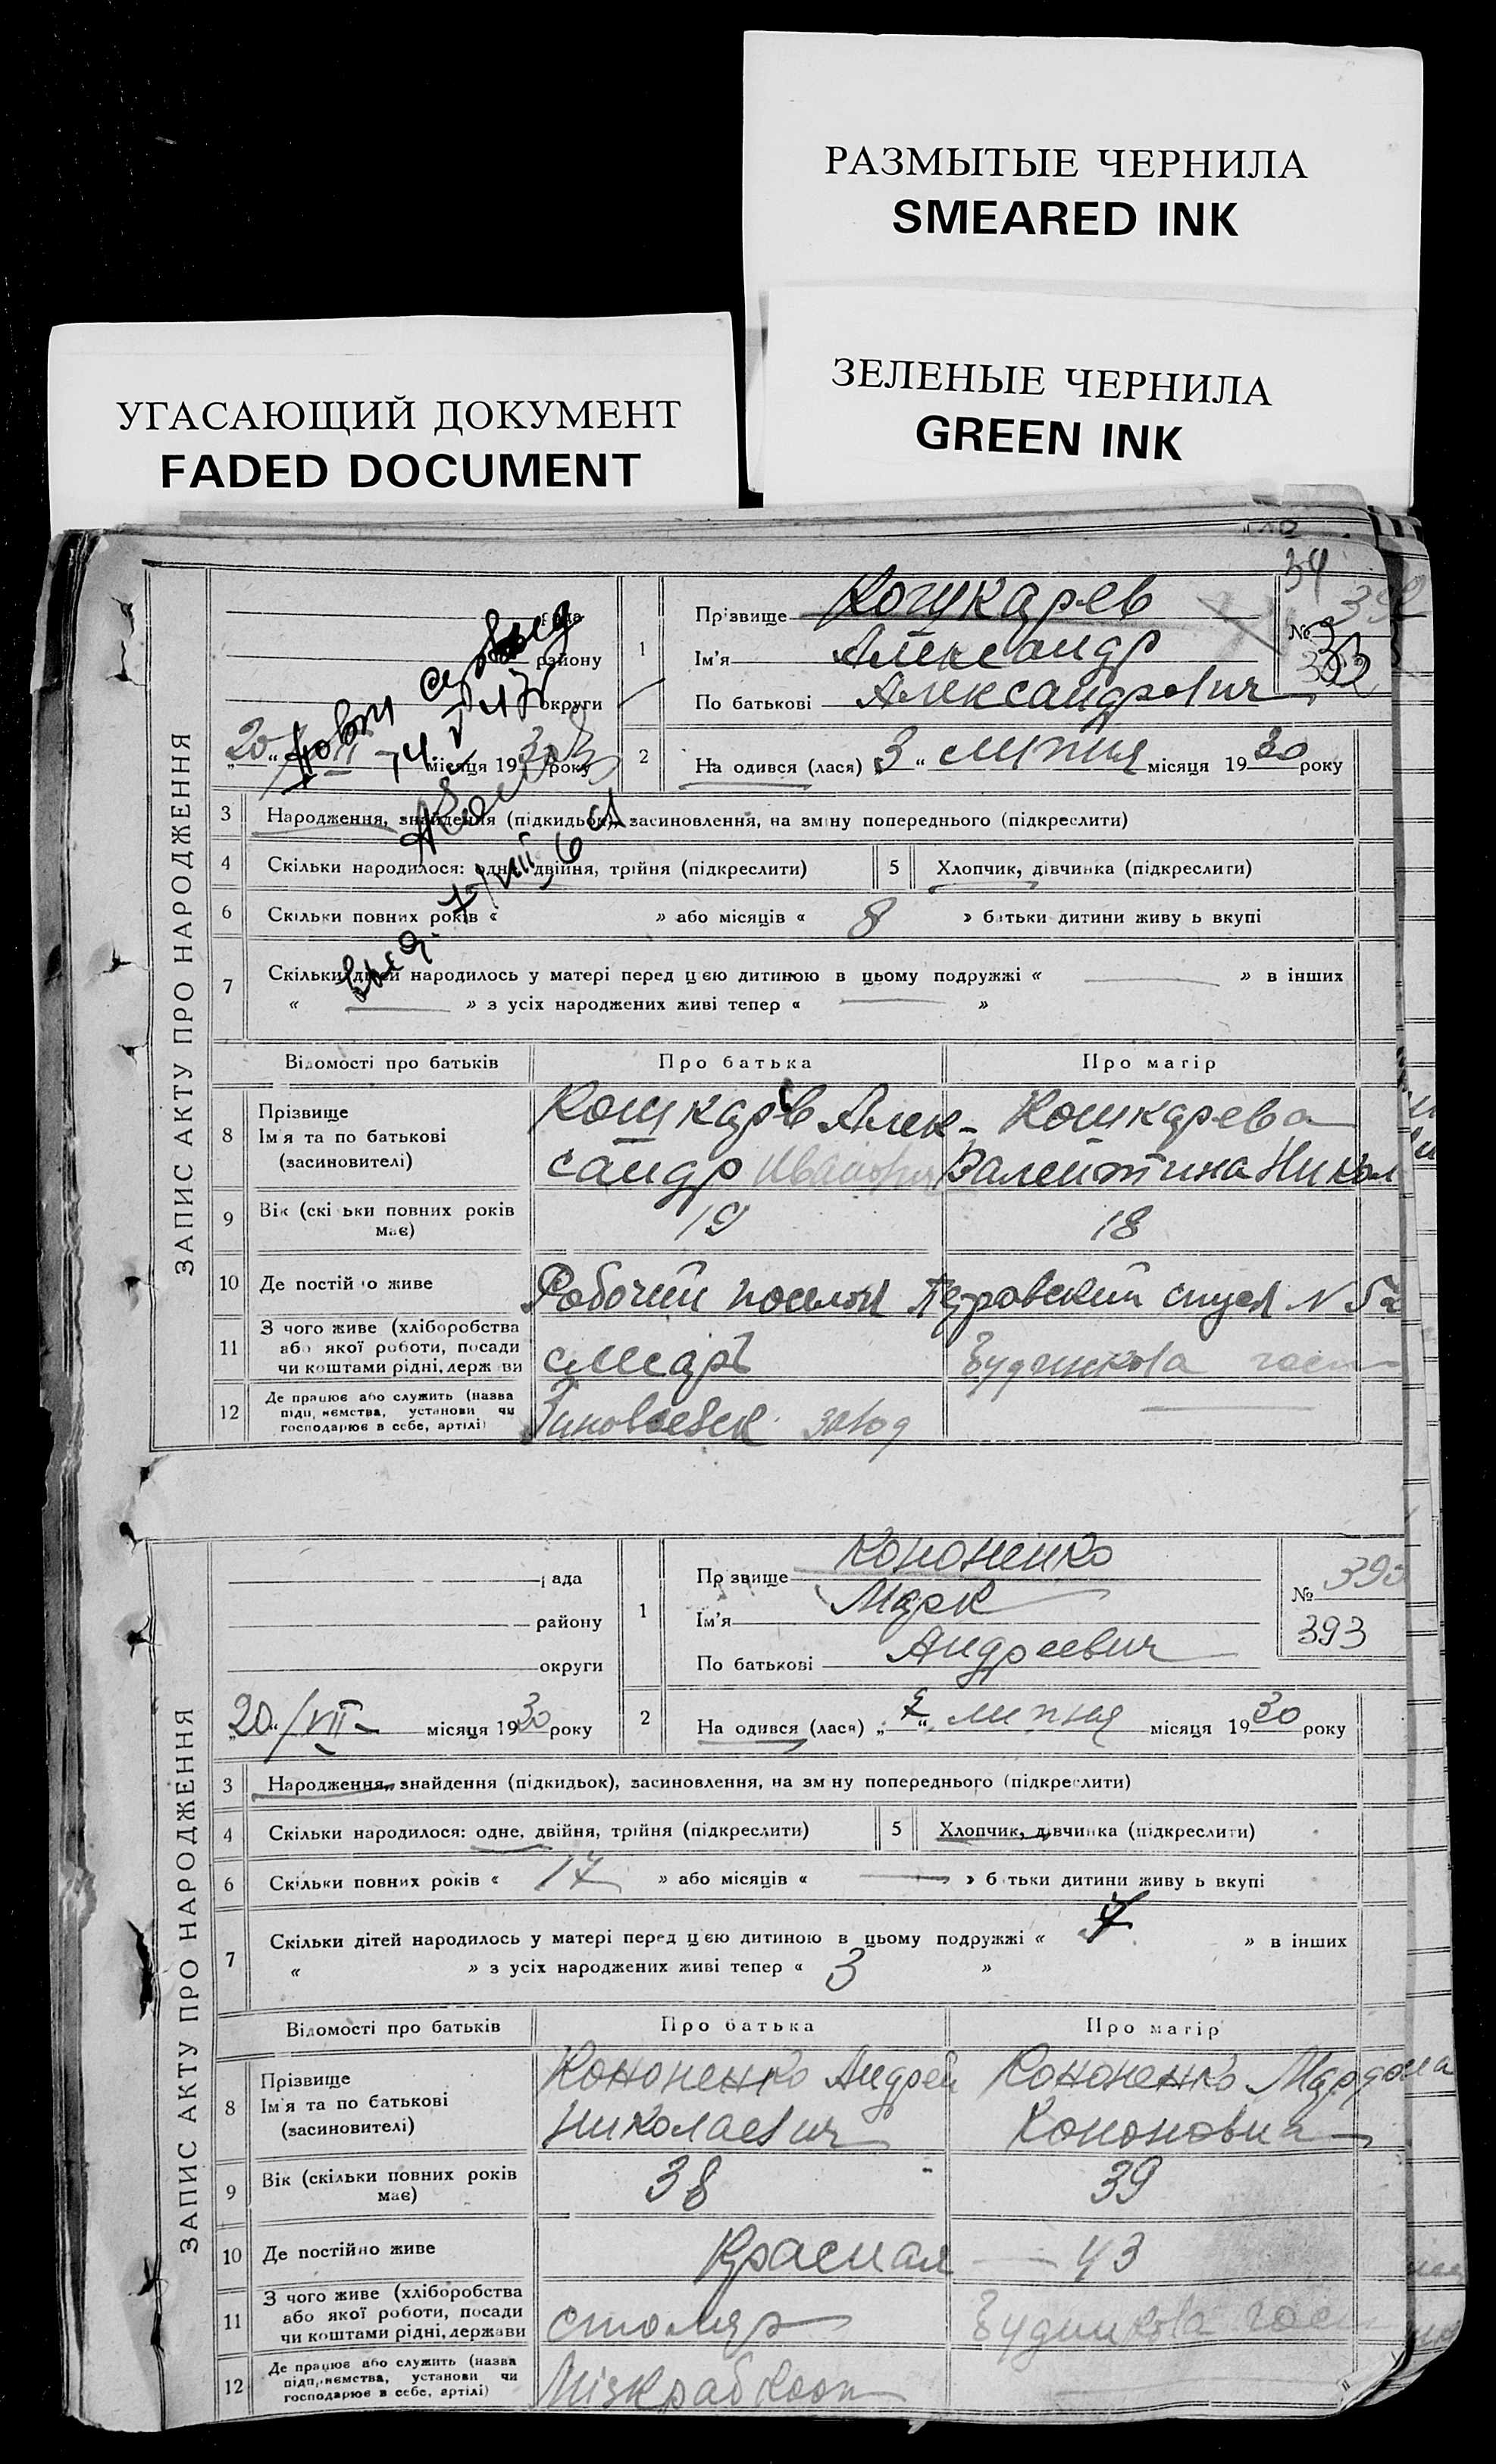 РАЗМЫТЫЕ ЧЕРНИЛА
SMEARED INK
ЗЕЛЕНЫЕ ЧЕРНИЛА
GREEN INK
УГАСАЮЩИЙ ДОКУМЕНТ
FADED DOCUMENT
34
ЗАПИС АКТУ ПРО НАРОДЖЕННЯ
району
округи
„20“ VII місяця 1930 року
1
Прізвище Кошкарев
Ім'я Александр
По батькові Александрович
№
2
На одився (лася) „3“ липня місяця 1930 року
3 Народження, знайдення (підкидьок), засиновлення, на зміну попереднього (підкреслити)
4 Скільки народилося: одне, двійня, трійня (підкреслити)
5 Хлопчик, дівчинка (підкреслити)
6 Скільки повних років « » або місяців « 8 » батьки дитини живу ь вкупі
7 Скільки дітей народилось у матері перед цією дитиною в цьому подружжі « — » в інших
« — » з усіх народжених живі тепер « — »
Відомості про батьків
Про батька
Про матір
8 Прізвище
Ім'я та по батькові
(засиновителі)
Кошкарев Алек-
сандр Иванович
Кошкарева
Валентина Никол
9 Вік (скі ьки повних років має)
19
18
10 Де постій о живе
Робочий поселок Петровский спуск N 52
11 З чого живе (хліборобства
або якої роботи, посади
чи коштами рідні, держ ви
слюсарь
Будинкова госп
12 Де працює або служить (назва
підп иємства, установи чи
господарює в себе, артілі)
Зиновьевск завод
ЗАПИС АКТУ ПРО НАРОДЖЕННЯ
рада
району
округи
„20“ /VII — місяця 1930 року
1
Пр звище Кононенко
Ім'я Марк
По батькові Андреевич
№ 390
393
2
На одився (лася) „ “ липня місяця 1930 року
3 Народження, знайдення (підкидьок), засиновлення, на зм ну попереднього (підкреслити)
4 Скільки народилося: одне, двійня, трійня (підкреслити)
5 Хлопчик, дівчинка (підкреслити)
6 Скільки повних років « 17 » або місяців « — » б тьки дитини живу ь вкупі
7 Скільки дітей народилось у матері перед цією дитиною в цьому подружжі « » в інших
« » з усіх народжених живі тепер « 3 »
Відомості про батьків
Про батька
Про матір
8 Прізвище
Ім'я та по батькові
(засиновителі)
Кононенко Андрей
Николаевич
Кононенко
Кононовна
9 Вік (скільки повних років має)
38
39
10 Де постійно живе
Красная — 43
11 З чого живе (хліборобства
або якої роботи, посади
чи коштами рідні, держави
столяр
Будинкова госп
12 Де працює або служить (назва
підприємства, установи чи
господарює в себе, артілі)
Міскрабкооп